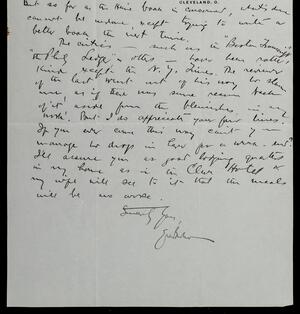 CLEVELAND, O.
But so far as the Kris book is concerned,
cannot be undone, except trying to write a
better book the next time.
The critics — such as in "Boston Transcript"
"the Phil. Ledger" & others — have been rather
kind except the N.Y. Times. The reviewer
of the last went out of his way to
me as if there was some reason
of it aside from the blemishes in my
"work". But I do appreciate your four lines.
If you ever come this way can't you
manage to drop in here for a week-end?
I'll assure you as good lodging quarters
in my house as in the Cleve Hotel &
my wife will see to it that the meals
will be no worse.
Sincerely yours,